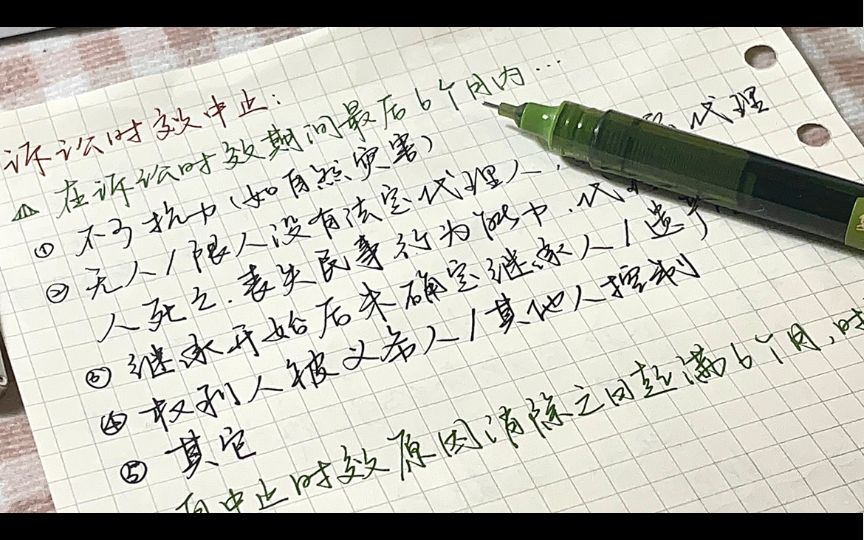 诉讼时效中止：
在诉讼时效期间最后6个月内…
① 不可抗力(如自然灾害)
② 无人/限人没有法定代理人、代理
人死亡、丧失民事行为能力、代
③ 继承开始后未确定继承人/遗产
④ 权利人被义务人/其他人控制
⑤ 其它
自中止时效原因消除之日起满6个月，时